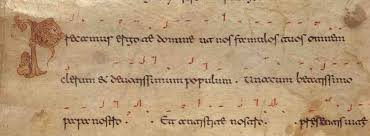 Precamur ergo te domine ut nos famulos tuos omnem
clerum & devotissimum populum . Unacum beatissimo
papa nostro . Et antistite nostro .